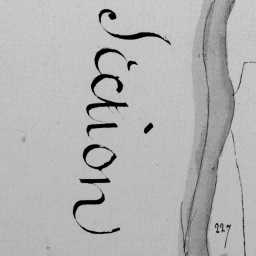 Section
227